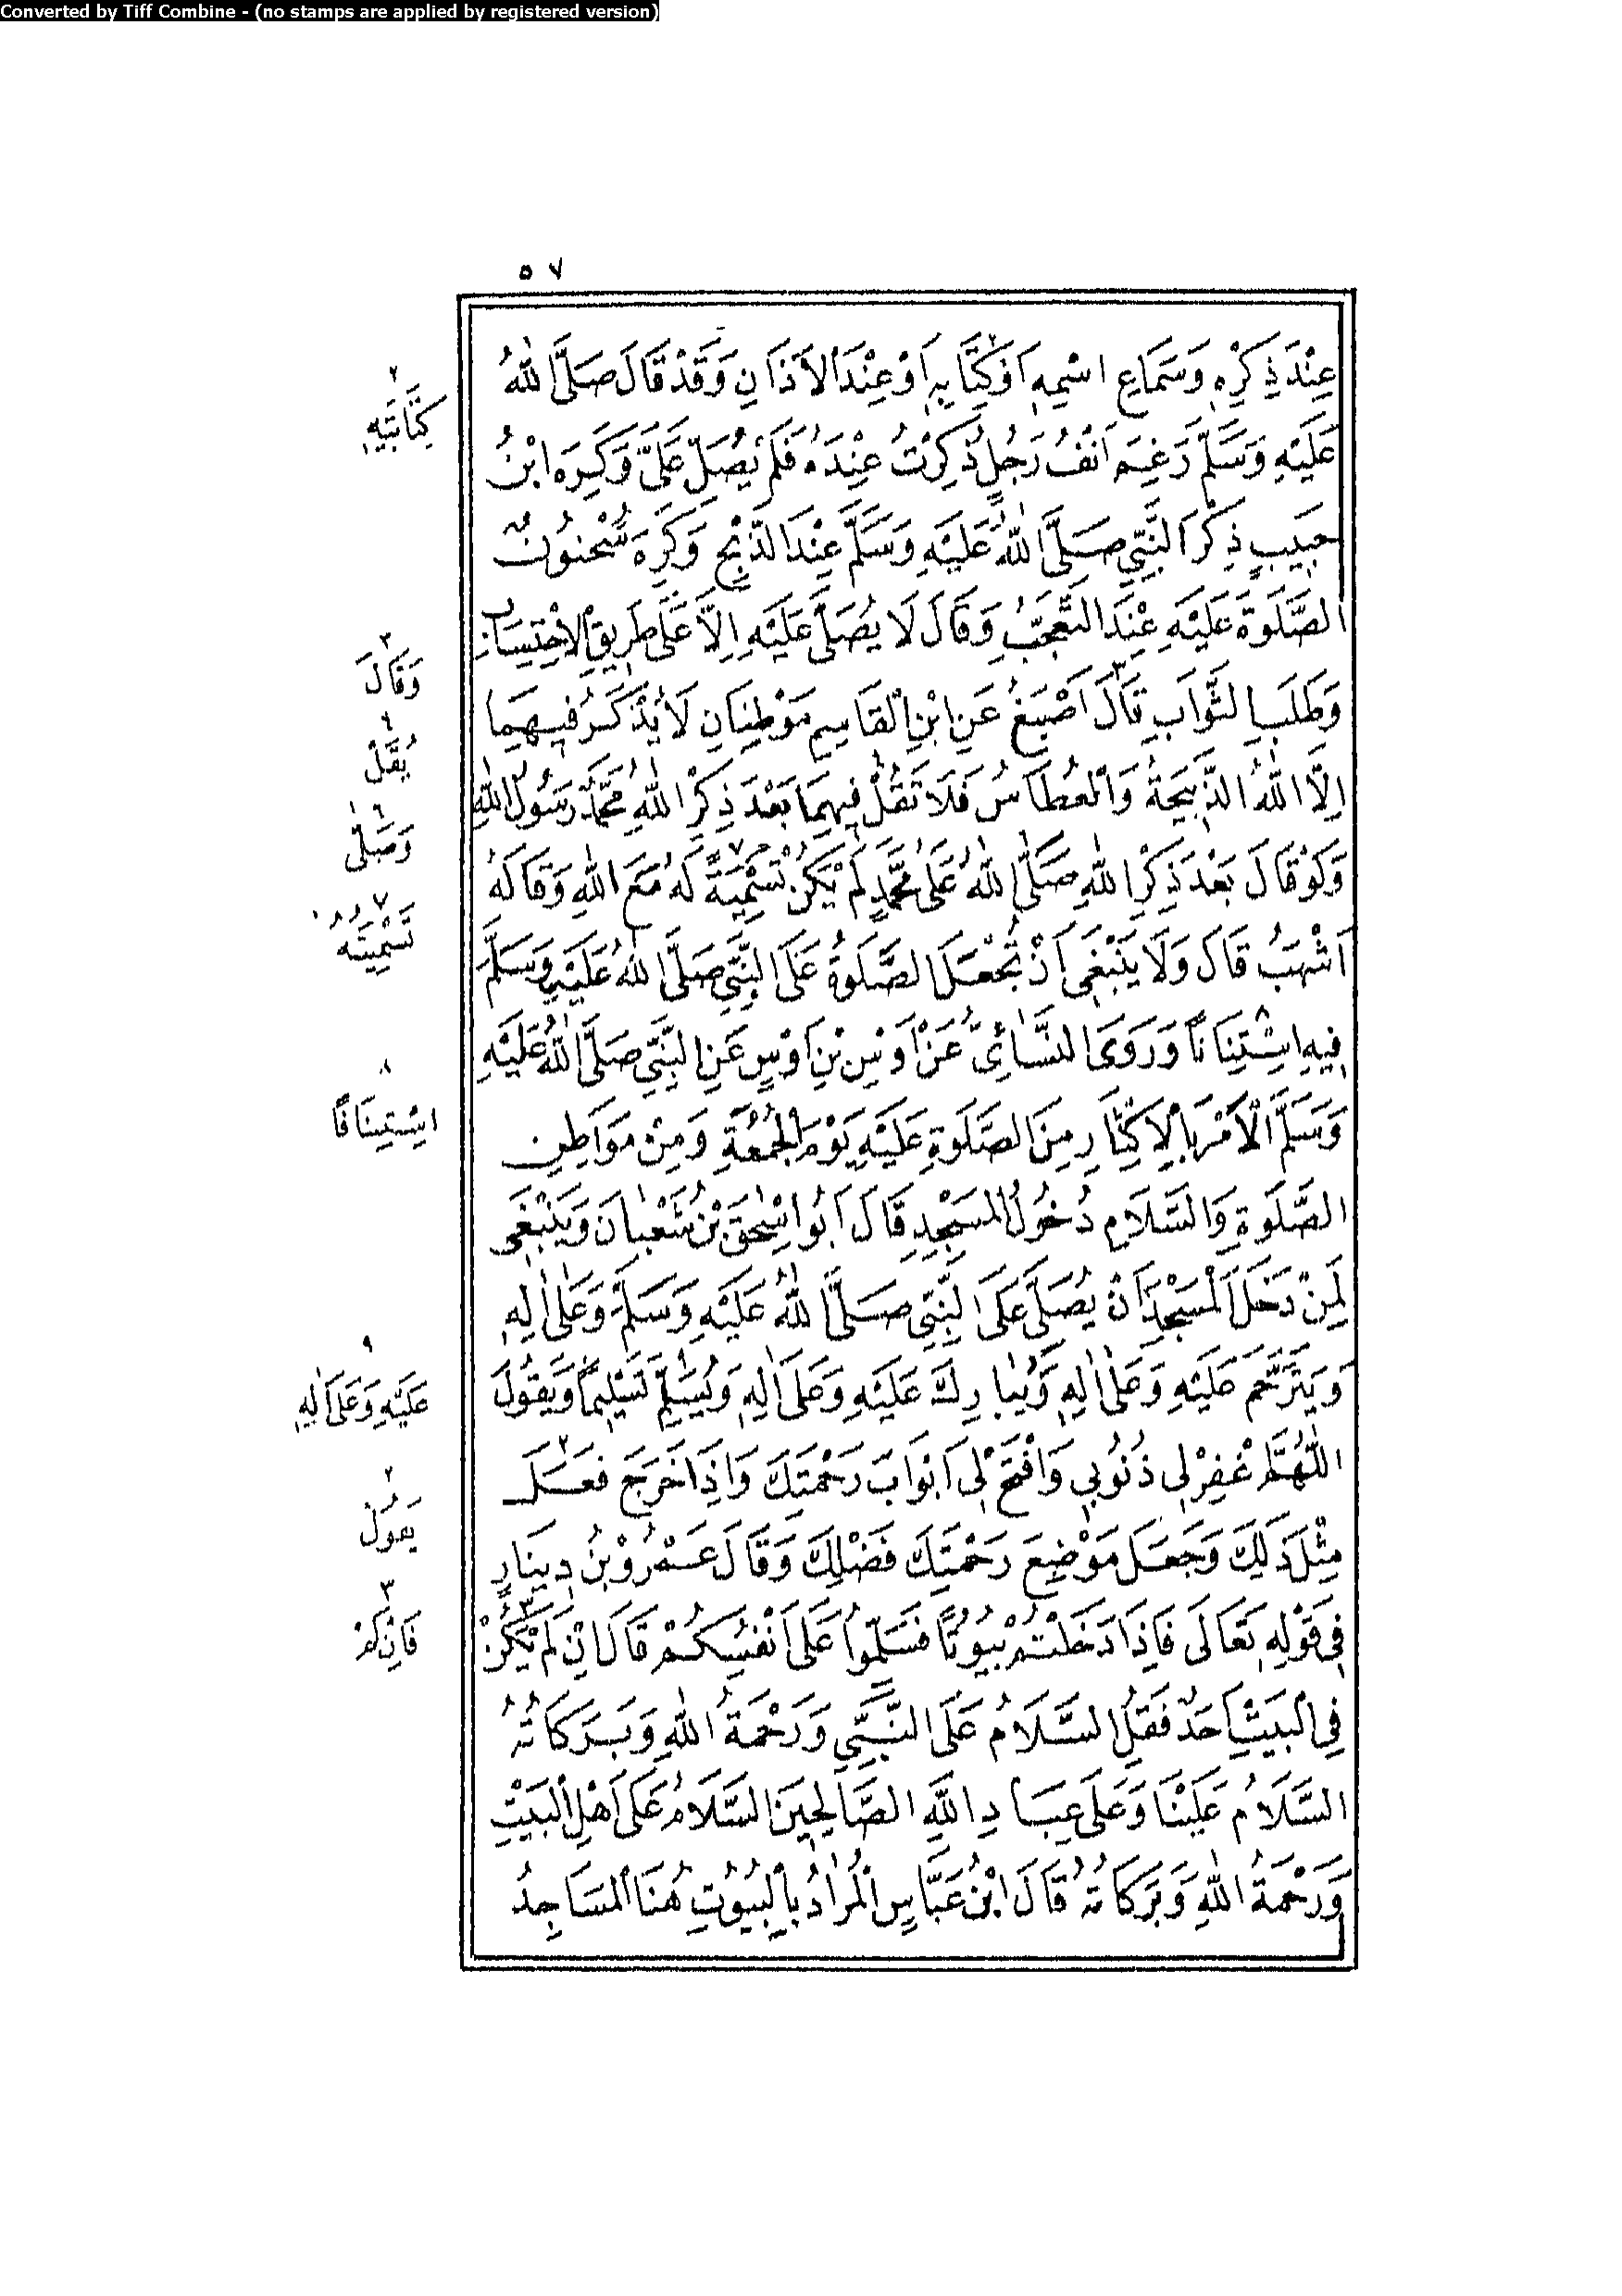 Converted by Tiff Combine - (no stamps are applied by registered version)
٥٧
عِنْدَ ذِكْرِهِ وَسَمَاعِ اسْمِهِ اَوْ كِتَابِهِ اَوْ عِنْدَ الْاَذَانِ وَقَدْ قَالَ صَلَّى اللّٰهُ
عَلَيْهِ وَسَلَّمَ رَغِمَ اَنْفُ رَجُلٍ ذُكِرْتُ عِنْدَهُ فَلَمْ يُصَلِّ عَلَيَّ وَكَرِهَ ابْنُ
حَبِيبٍ ذِكْرَ النَّبِيِّ صَلَّى اللّٰهُ عَلَيْهِ وَسَلَّمَ عِنْدَ الذَّبْحِ وَكَرِهَ سُحْنُونٌ
الصَّلٰوةَ عَلَيْهِ عِنْدَ التَّعَجُّبِ وَقَالَ لَا يُصَلَّى عَلَيْهِ اِلَّا عَلَى طَرِيقِ الْاِحْتِسَابِ
وَطَلَبِ الثَّوَابِ قَالَ اَصْبَغُ عَنِ ابْنِ الْقَاسِمِ مَوْطِنَانِ لَا يُذْكَرُ فِيهِمَا
اِلَّا اللّٰهُ الذَّبِيحَةُ وَالْعُطَاسُ فَلَا تَقُلْ فِيهِمَا بَعْدَ ذِكْرِ اللّٰهِ مُحَمَّدٌ رَسُولُ اللّٰهِ
وَلَوْ قَالَ بَعْدَ ذِكْرِ اللّٰهِ صَلَّى اللّٰهُ عَلَى مُحَمَّدٍ لَمْ يَكُنْ تَسْمِيَةً لَهُ مَعَ اللّٰهِ وَقَالَهُ
اَشْهَبُ قَالَ وَلَا يَنْبَغِى اَنْ تُجْعَلَ الصَّلٰوةُ عَلَى النَّبِيِّ صَلَّى اللّٰهُ عَلَيْهِ وَسَلَّمَ
فِيهِ اسْتِنَانًا وَرَوَى النَّسَائِىُّ عَنْ اَوْسِ بْنِ اَوْسٍ عَنِ النَّبِيِّ صَلَّى اللّٰهُ عَلَيْهِ
وَسَلَّمَ الْاَمْرَ بِالْاِكْثَارِ مِنَ الصَّلٰوةِ عَلَيْهِ يَوْمَ الْجُمُعَةِ وَمِنْ مَوَاطِنِ
الصَّلٰوةِ وَالسَّلَامِ دُخُولُ الْمَسْجِدِ قَالَ اَبُو اِسْحٰقَ بْنُ شَعْبَانَ وَيَنْبَغِى
لِمَنْ دَخَلَ الْمَسْجِدَ اَنْ يُصَلِّىَ عَلَى النَّبِيِّ صَلَّى اللّٰهُ عَلَيْهِ وَسَلَّمَ وَعَلٰى اٰلِهِ
وَيَتَرَحَّمَ عَلَيْهِ وَعَلٰى اٰلِهِ وَيُبَارِكَ عَلَيْهِ وَعَلَى اٰلِهِ وَيُسَلِّمَ تَسْلِيمًا وَيَقُولَ
اللّٰهُمَّ اغْفِرْ لِى ذُنُوبِى وَافْتَحْ لِى اَبْوَابَ رَحْمَتِكَ وَاِذَا خَرَجَ فَعَلَ
مِثْلَ ذٰلِكَ وَجَعَلَ مَوْضِعَ رَحْمَتِكَ فَضْلِكَ وَقَالَ عَمْرُو بْنُ دِينَارٍ
فِى قَوْلِهِ تَعَالَى فَاِذَا دَخَلْتُمْ بُيُوتًا فَسَلِّمُوا عَلَى اَنْفُسِكُمْ قَالَ اِنْ لَمْ يَكُنْ
فِى الْبَيْتِ اَحَدٌ فَقُلِ السَّلَامُ عَلَى النَّبِيِّ وَرَحْمَةُ اللّٰهِ وَبَرَكَاتُهُ
السَّلَامُ عَلَيْنَا وَعَلَى عِبَادِ اللّٰهِ الصَّالِحِينَ السَّلَامُ عَلَى اَهْلِ الْبَيْتِ
وَرَحْمَةُ اللّٰهِ وَبَرَكَاتُهُ قَالَ ابْنُ عَبَّاسٍ الْمُرَادُ بِالْبُيُوتِ هُنَا الْمَسَاجِدُ
٢
كِتَابَتِهِ
٣
وَقَالَ
يُقَلْ
٦
وَصَلَّى
٧
تَسْمِيَتُهُ
٨
اسْتِينَافًا
٩
عَلَيْهِ وَعَلَى اٰلِهِ
٢
يَقُولُ
٣
فَاِنْ لَمْ